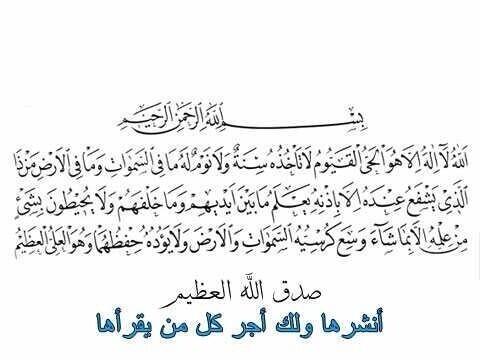 بِسْمِ اللَّهِ الرَّحْمَٰنِ الرَّحِيمِ
اللَّهُ لَا إِلَٰهَ إِلَّا هُوَ الْحَيُّ الْقَيُّومُ لَا تَأْخُذُهُ سِنَةٌ وَلَا نَوْمٌ لَهُ مَا فِي السَّمَوَاتِ وَمَا فِي الْأَرْضِ مَنْ ذَا
الَّذِي يَشْفَعُ عِنْدَهُ إِلَّا بِإِذْنِهِ يَعْلَمُ مَا بَيْنَ أَيْدِيهِمْ وَمَا خَلْفَهُمْ وَلَا يُحِيطُونَ بِشَيْءٍ
مِنْ عِلْمِهِ إِلَّا بِمَا شَاءَ وَسِعَ كُرْسِيُّهُ السَّمَوَاتِ وَالْأَرْضَ وَلَا يَؤُدُهُ حِفْظُهُمَا وَهُوَ الْعَلِيُّ الْعَظِيمُ
صدق الله العظيم
أنشرها ولك أجر كل من يقرأها